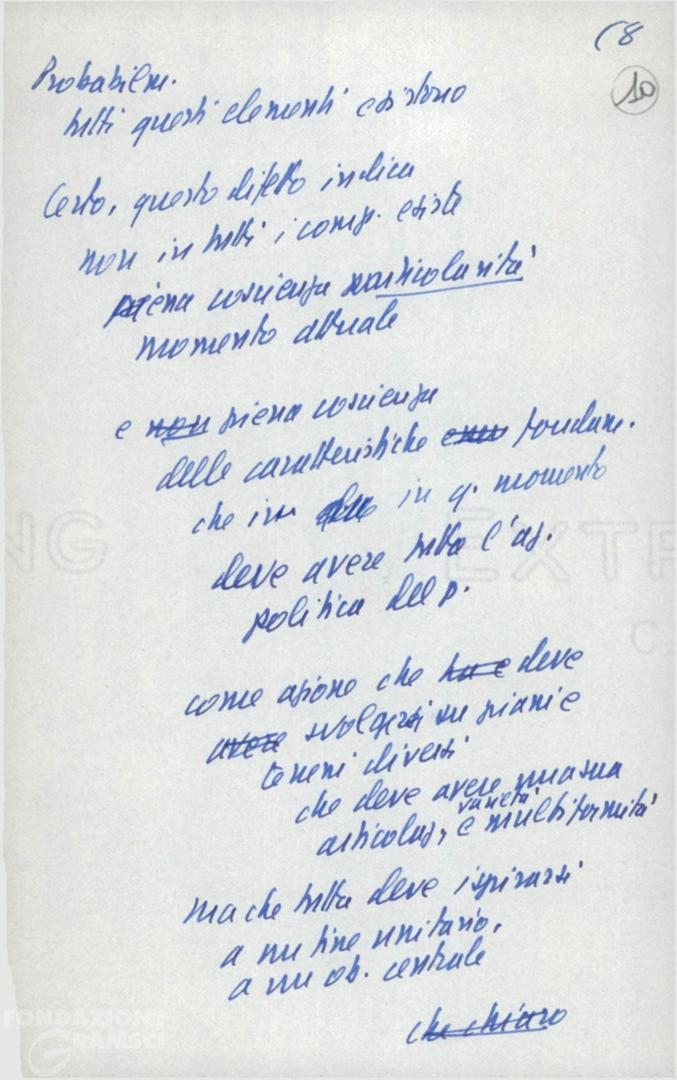 (8
10
Probabilm.
tutti questi elementi esistono
Certo, questo difetto indica
non in tutti i comp. esiste
piena coscienza particolarità
momento attuale
e non piena coscienza
delle caratteristiche fondam.
che in in q. momento
deve avere tutta l'az.
politica del p.
come azione che deve
avere svolgersi su piani e
terreni diversi
che deve avere una sua
varietà
articolaz, e multiformità
ma che tutta deve ispirarsi
a un fine unitario,
a un ob. centrale
che chiaro
NG EXTR
C
FONDAZIONE
GRAMSCI